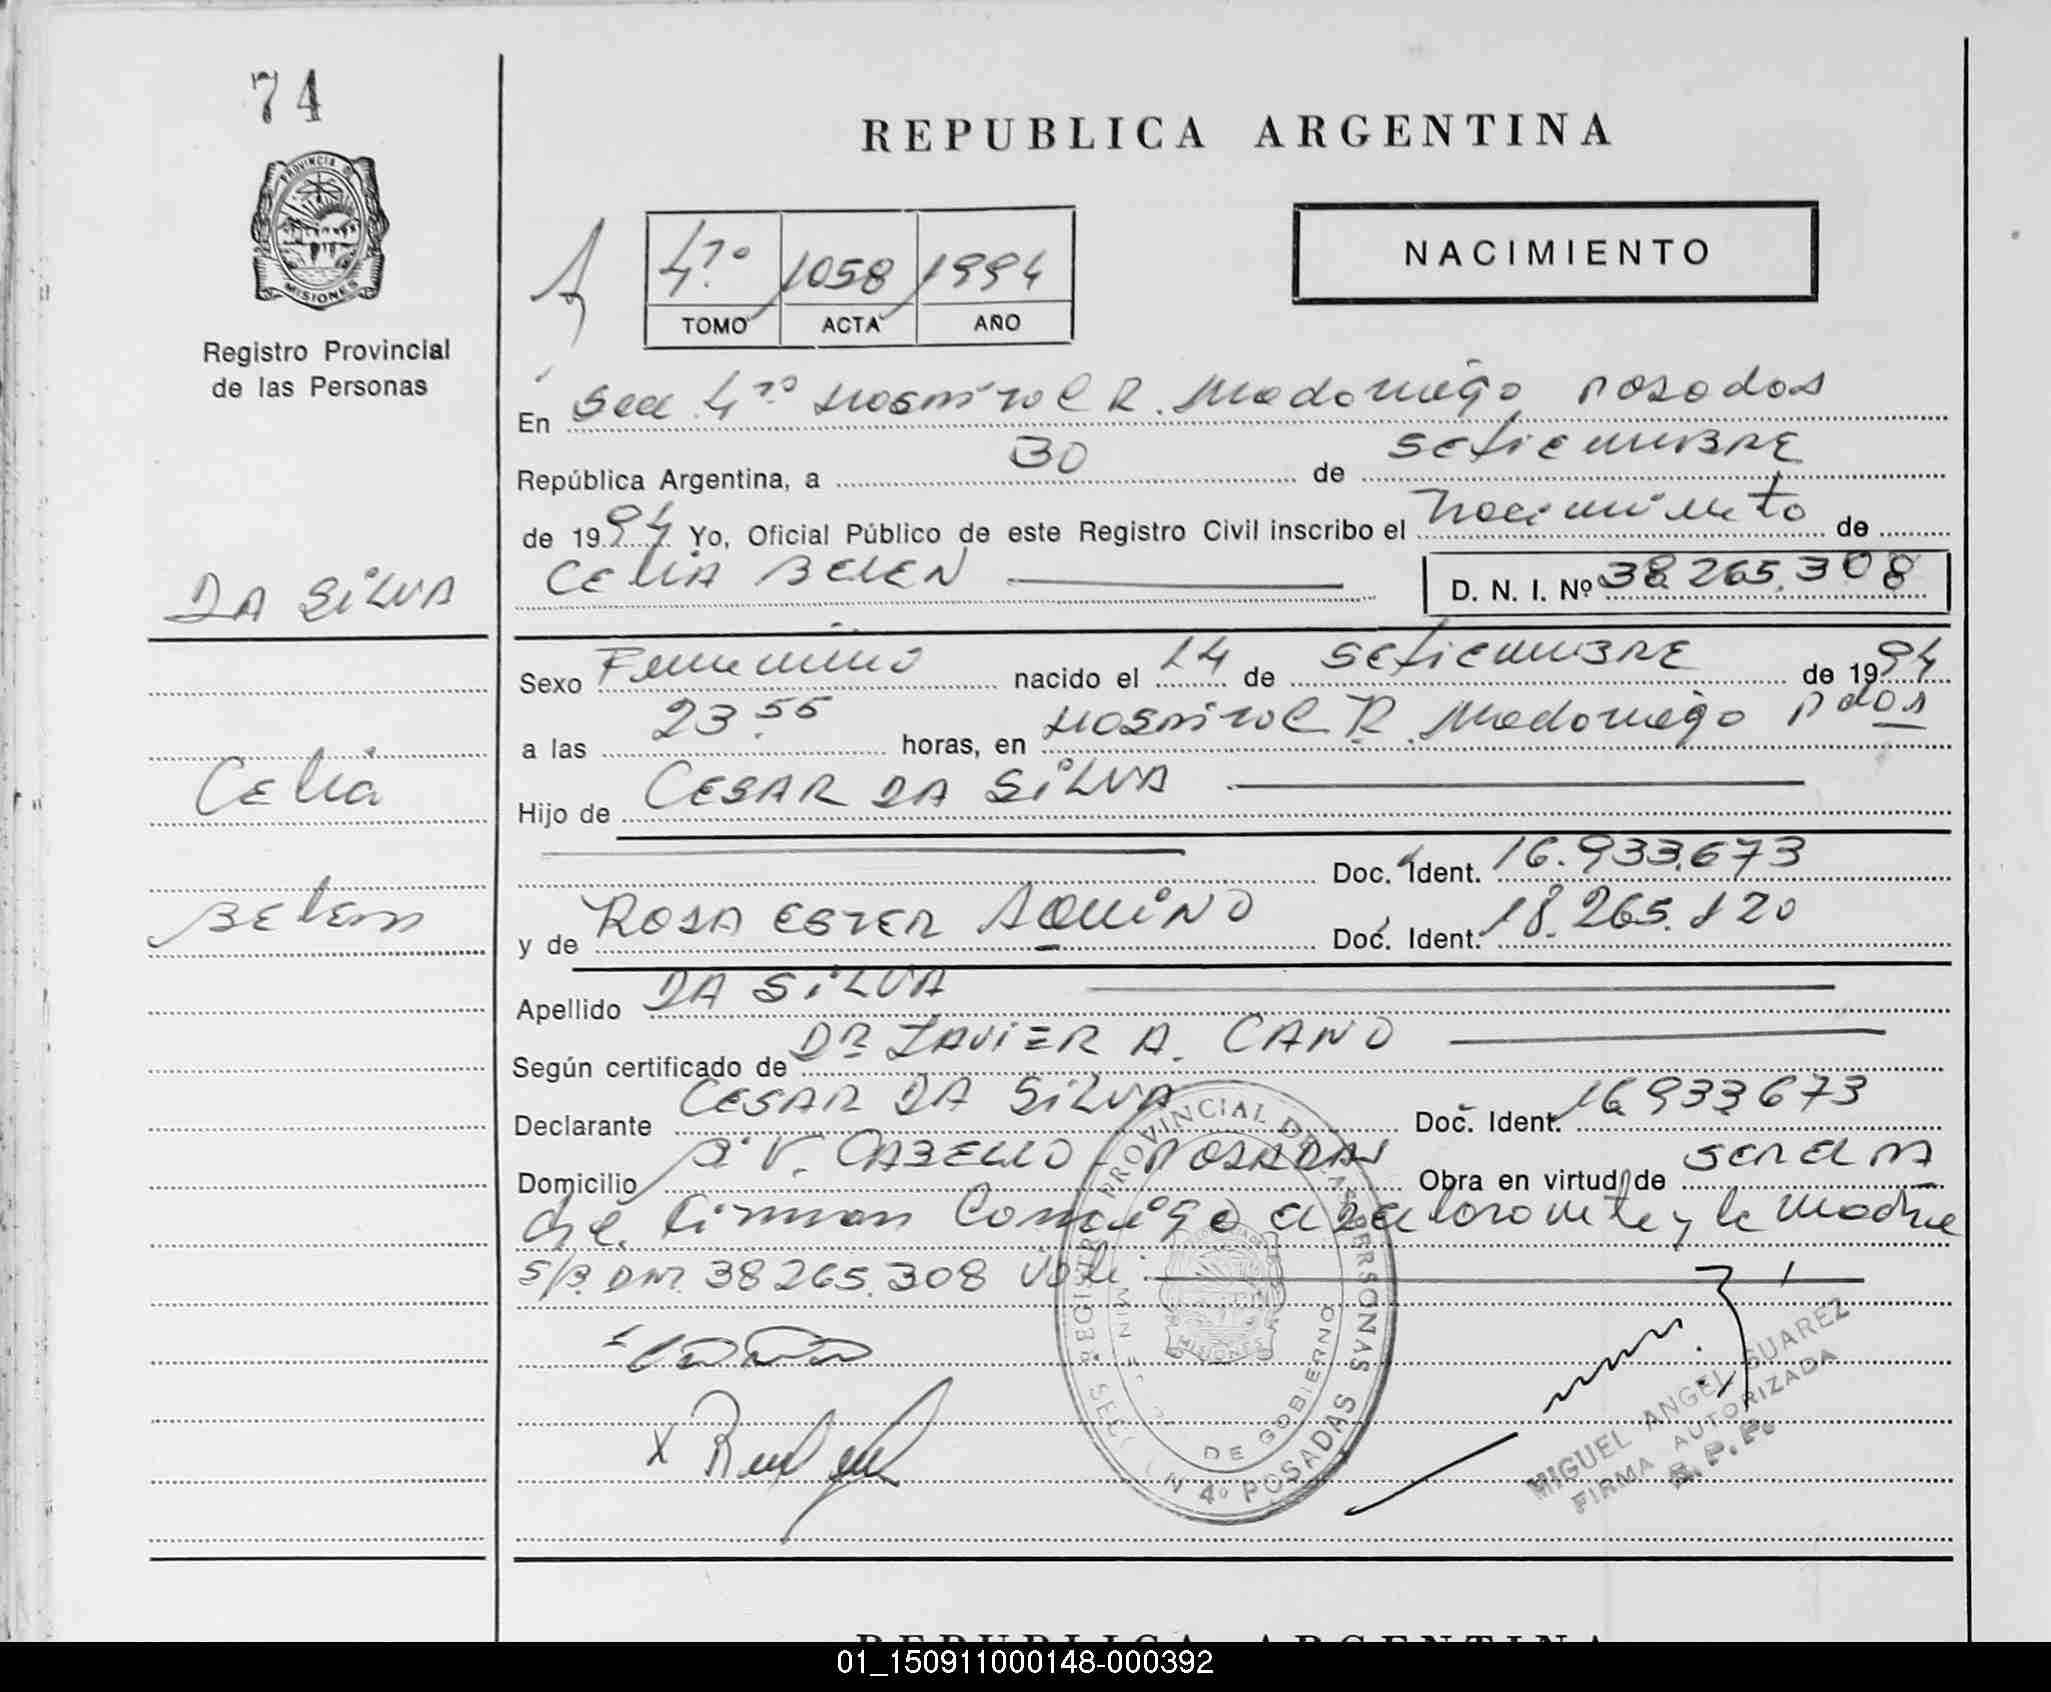 74
REPUBLICA ARGENTINA
PROVINCIA DE
MISIONES
Registro Provincial
de las Personas
NACIMIENTO
4ta 1058 1994
TOMO ACTA AÑO
En Secc 4ta Hospital R. Madariaga Posadas
República Argentina, a 30 de Setiembre
de 1994 Yo, Oficial Público de este Registro Civil inscribo el nacimiento de
DA SILVA
CELIA BELEN D. N. I. Nº 38.265.308
Sexo Femenino nacido el 14 de Setiembre de 1994
a las 23.55 horas, en Hospital R. Madariaga Pdas
Celia
Hijo de CESAR DA SILVA
Doc. Ident. 16.933.673
Belen
y de ROSA ESTER AQUINO Doc. Ident. 18.265.120
Apellido DA SILVA
Según certificado de Dr JAVIER A. CANO
Declarante CESAR DA SILVA Doc. Ident. 16933673
Domicilio V. CABELLO POSADAS Obra en virtud de ser el pa
dre. firman conmigo el declarante y la madre
S/B. DNI. 38265.308 Vale
REGISTRO PROVINCIAL DE LAS PERSONAS
DE GOBIERNO
MISIONES
SECCION 4º POSADAS
MIGUEL ANGEL SUAREZ
FIRMA AUTORIZADA
R. P. P.
REPUBLICA ARGENTINA
01_150911000148-000392